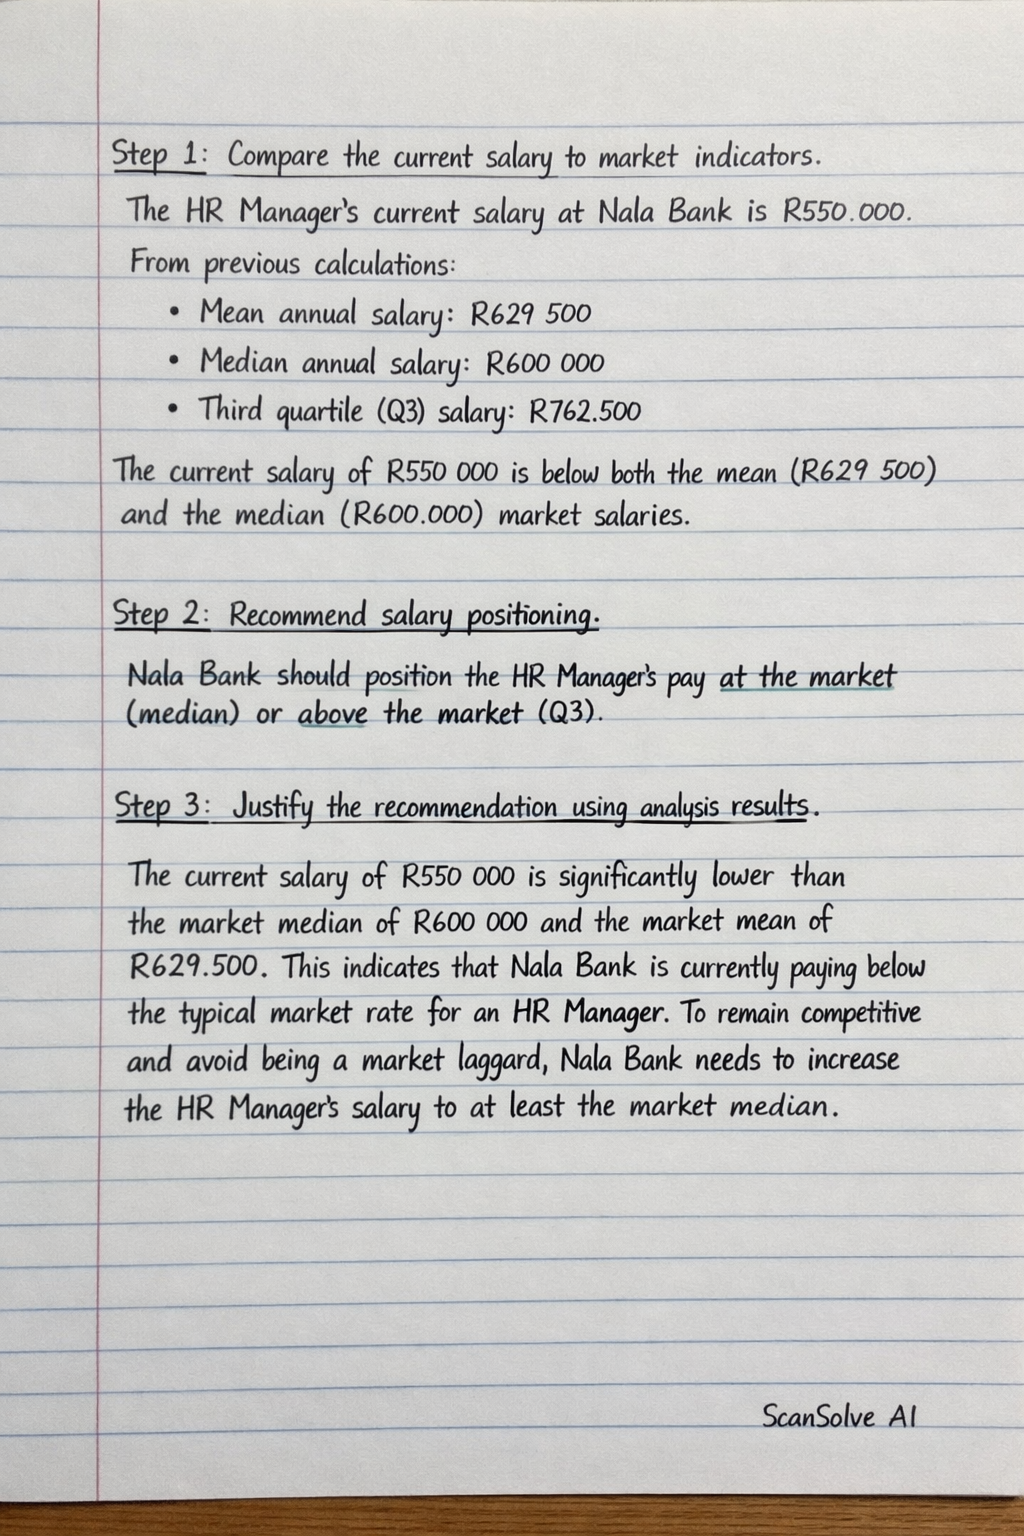 Step 1: Compare the current salary to market indicators.
The HR Manager's current salary at Nala Bank is R550.000.
From previous calculations:
• Mean annual salary: R629 500
• Median annual salary: R600 000
• Third quartile (Q3) salary: R762.500
The current salary of R550 000 is below both the mean (R629 500)
and the median (R600.000) market salaries.
Step 2: Recommend salary positioning.
Nala Bank should position the HR Manager's pay at the market
(median) or above the market (Q3).
Step 3: Justify the recommendation using analysis results.
The current salary of R550 000 is significantly lower than
the market median of R600 000 and the market mean of
R629.500. This indicates that Nala Bank is currently paying below
the typical market rate for an HR Manager. To remain competitive
and avoid being a market laggard, Nala Bank needs to increase
the HR Manager's salary to at least the market median.
ScanSolve AI